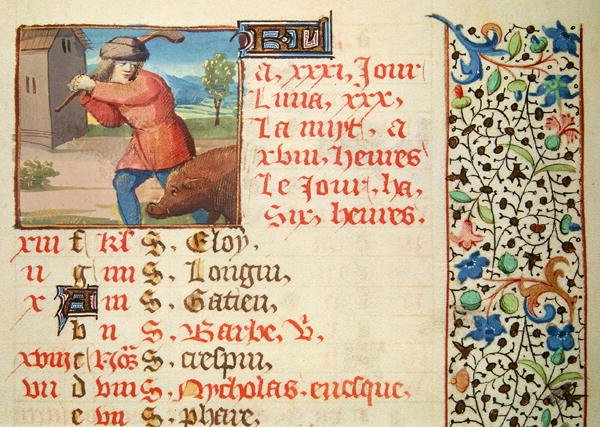 a, xxxi, Jour
Luna, xxx,
La nuyt, a
xviii, heures
Le Jour, ha,
Six, heures.
xiii f kl S. Eloy,
ii g iiii S. Longin,
x A iii S. Gatien,
b ii S. Barbe, V.
xviii c Noẽs S. crespin,
vii d viii S. Nycholas. euesque,
e vii S. phare,